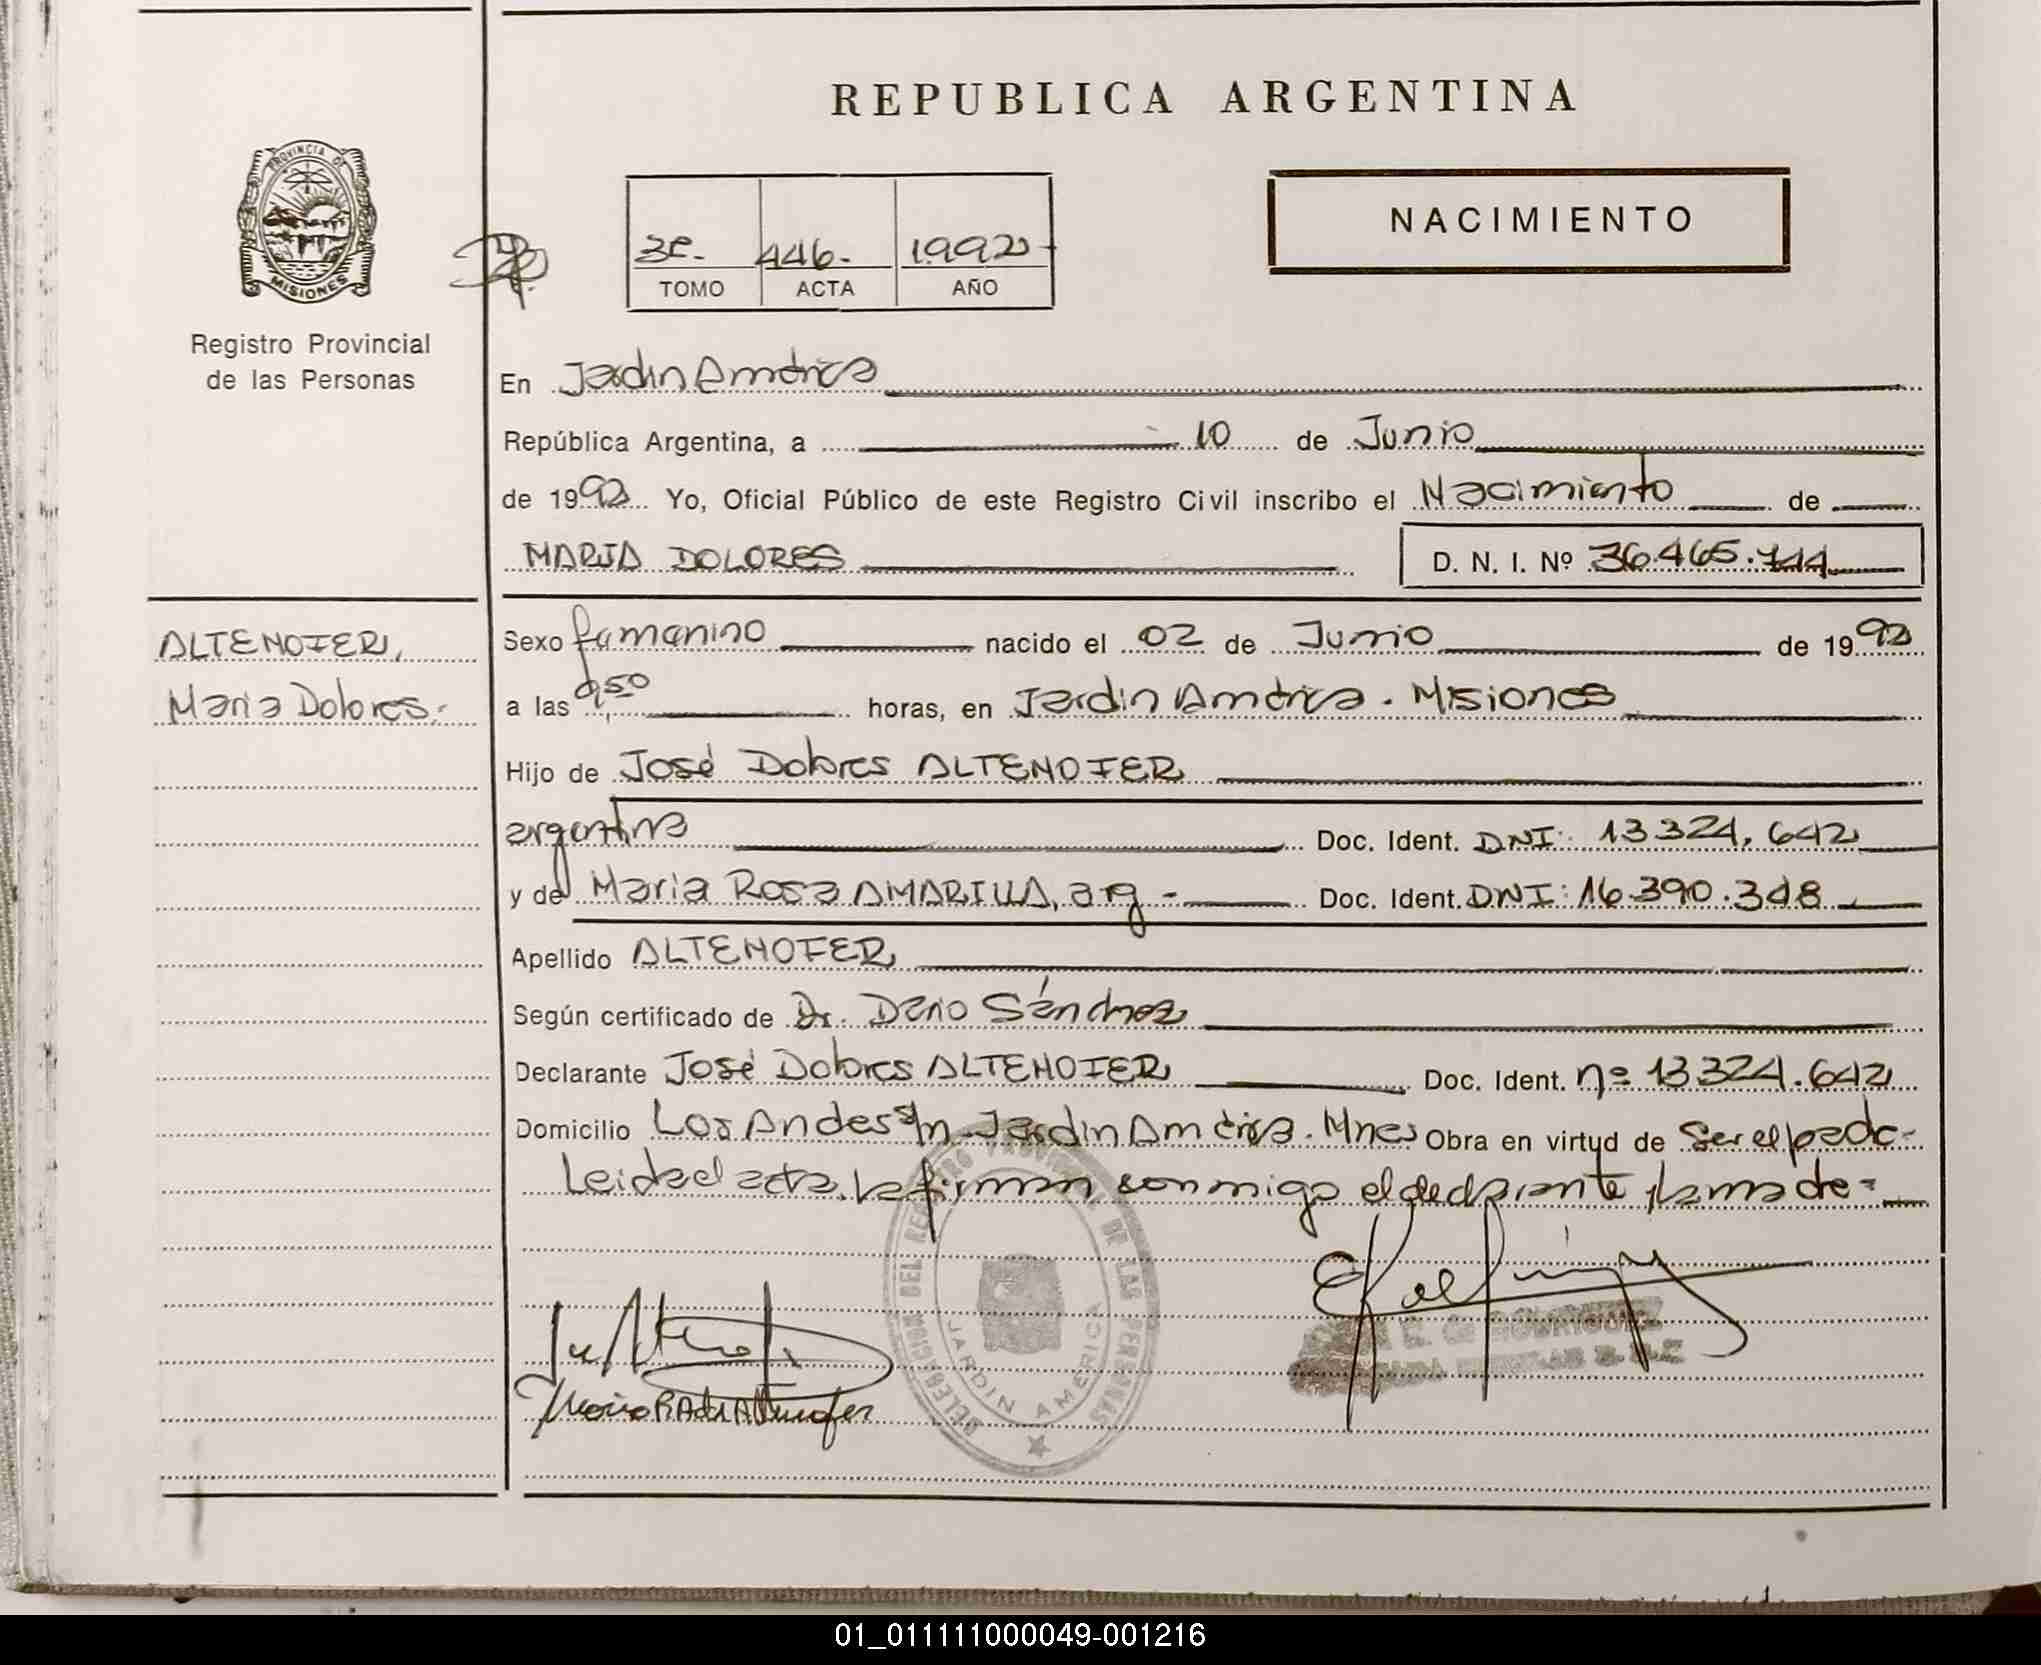 REPUBLICA ARGENTINA
NACIMIENTO
PROVINCIA DE
MISIONES
Registro Provincial
de las Personas
446- 1992-
TOMO ACTA AÑO
En Jardin América
República Argentina, a 10 de Junio
de 1992 Yo, Oficial Público de este Registro Civil inscribo el Nacimiento de
MARIA DOLORES D. N. I. Nº 36.465.744
ALTENOFER,
Maria Dolores.-
Sexo femenino nacido el 02 de Junio de 1992
a las 9,50 horas, en Jardin América. Misiones
Hijo de José Dolores ALTENOFER
argentina Doc. Ident. DNI: 13324.642
y de Maria Rosa AMARILLA, arg - Doc. Ident. DNI: 16.390.348
Apellido ALTENOFER
Según certificado de Dr. Dario Sánchez
Declarante José Dolores ALTENOFER Doc. Ident. nº 13324.642
Domicilio Los Andes s/n Jardin América. Mnes Obra en virtud de Ser el padre-
Leida el acta, la firman conmigo el declarante y la madre=
DELEGACION DEL REGISTRO PROVINCIAL DE LAS PERSONAS
JARDIN AMERICA
01_011111000049-001216